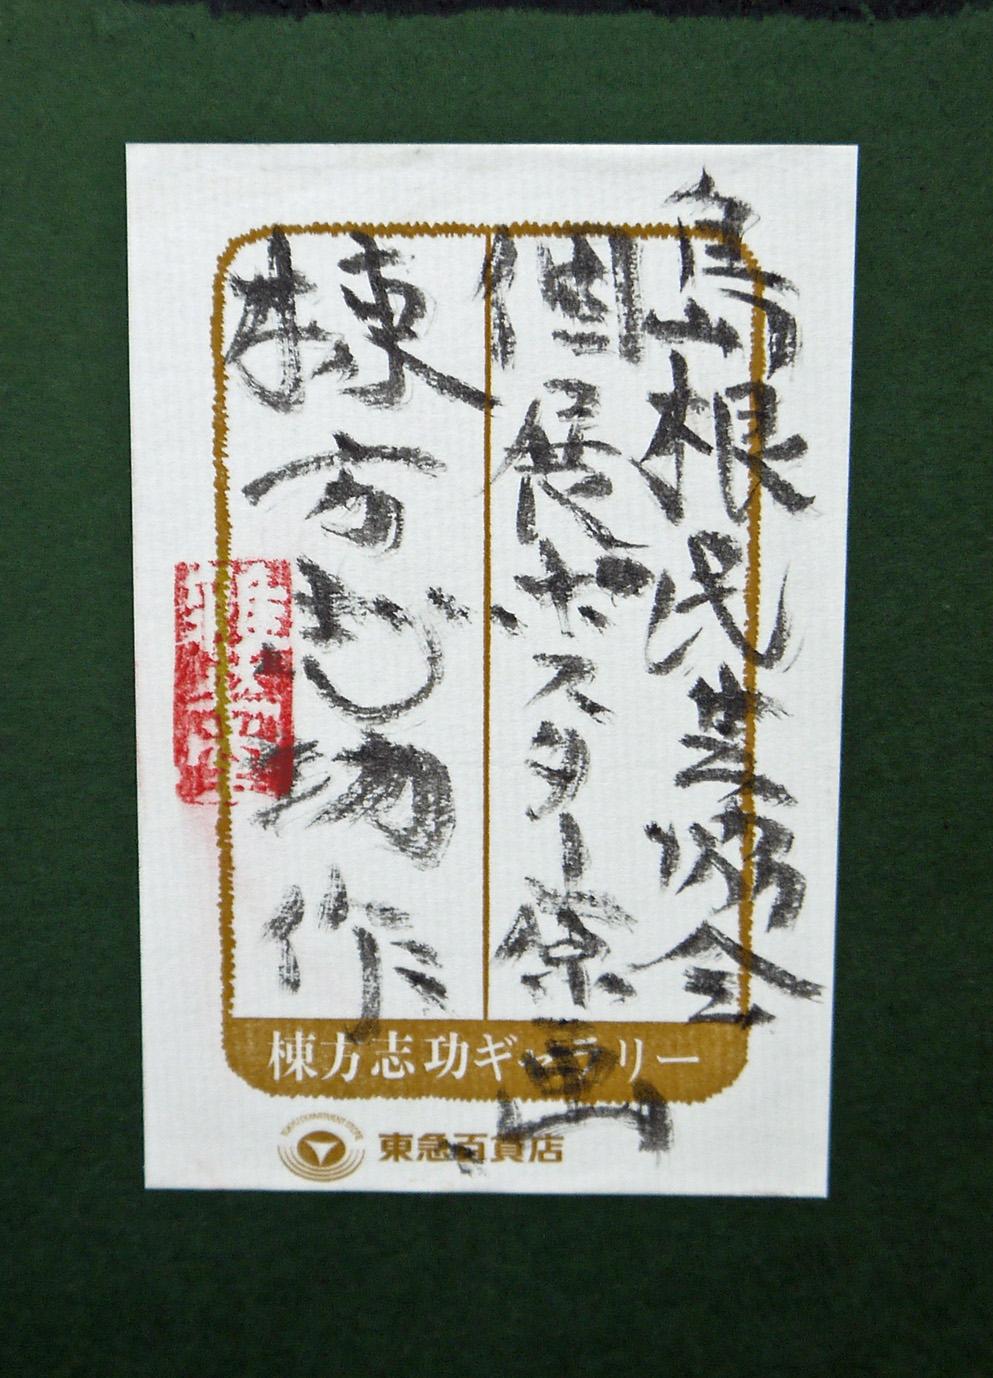 島根民芸協会
個展ポスター原画
棟方志功作
棟方志功ギャラリー
TOKYU DEPARTMENT STORE
東急百貨店